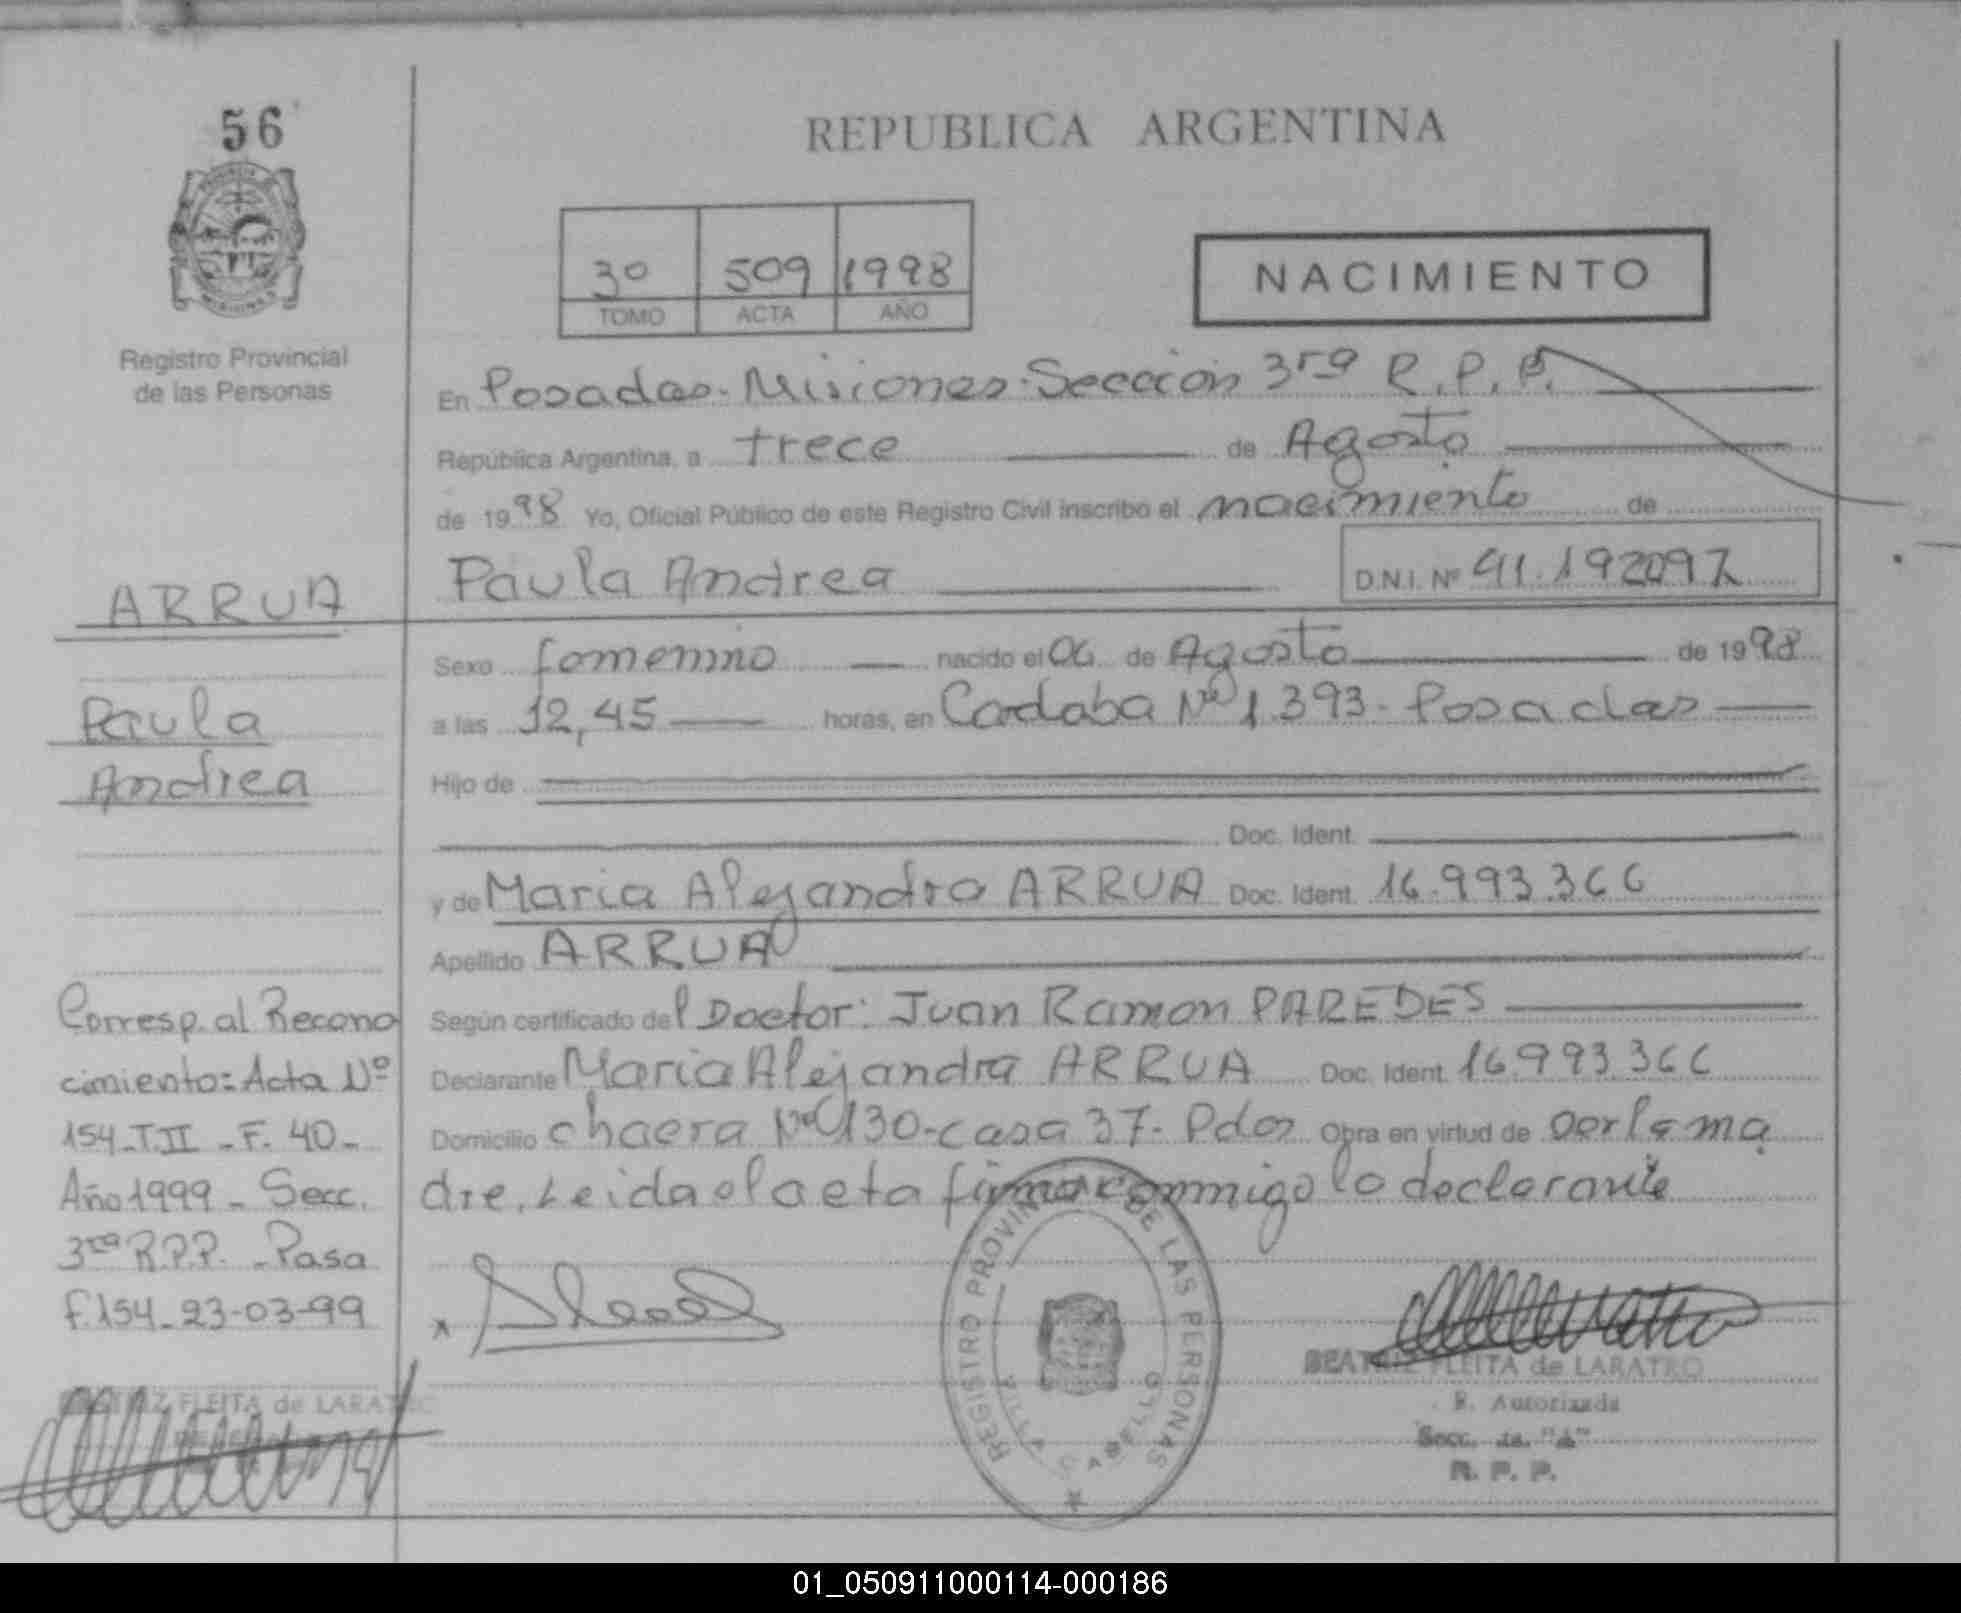 56
Registro Provincial
de las Personas
REPUBLICA ARGENTINA
3º 509 1998
TOMO ACTA AÑO
NACIMIENTO
En Posadas-Misiones-Sección 3ra R.P.P.
República Argentina, a trece de Agosto
de 1998 Yo, Oficial Público de este Registro Civil inscribo el nacimiento de
Paula Andrea D.N.I. Nº 41.192097
ARRUA
Paula
Andrea
Sexo femenino nacido el 06 de Agosto de 1998
a las 12,45 horas, en Cordoba Nº 1.393- Posadas
Hijo de
Doc. Ident.
y de Maria Alejandra ARRUA Doc. Ident. 16.993.366
Apellido ARRUA
Según certificado del Doctor: Juan Ramon PAREDES
Declarante Maria Alejandra ARRUA Doc. Ident. 16.993.366
Domicilio chacra Nº 130-casa 37- Pdas Obra en virtud de ser la ma
dre. Leida el acta firma conmigo la declarante
Corresp. al Recono
cimiento: Acta Nº
154-T.II - F. 40-
Año 1999 - Secc.
3ra R.P.P. - Pasa
F.154-23-03-99
BEATRIZ FLEITA de LARATRO
REGISTRO PROVINCIAL DE LAS PERSONAS
VILLA CABELLO
BEATRIZ FLEITA de LARATRO
R. Autorizada
Secc. 3a. "A"
R. P. P.
01_050911000114-000186